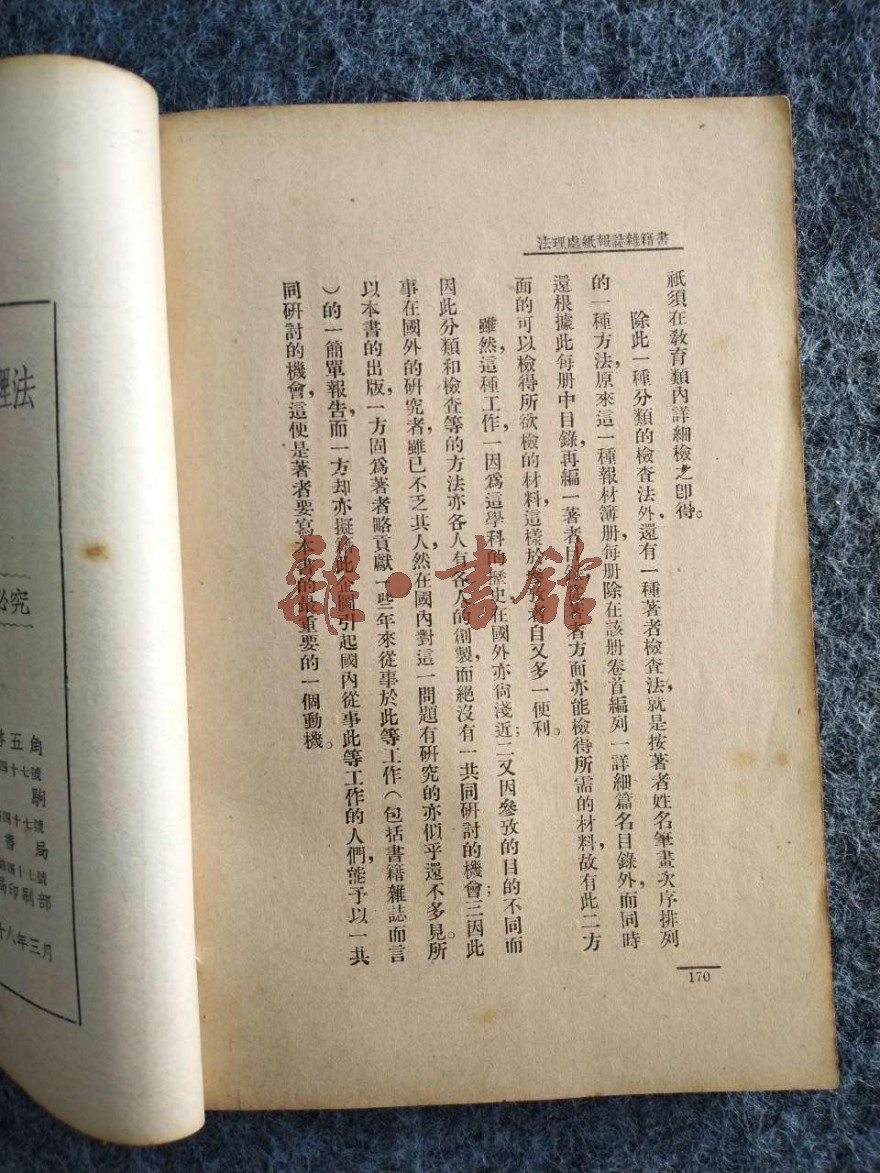 書籍雜誌報紙處理法
祇須在敎育類內詳細檢之卽得。
除此一種分類的檢查法外、還有一種著者檢查法，就是按著者姓名筆畫次序排列
的一種方法，原來這一種報材簿册，每册除在該册卷首編列一詳細篇名目錄外，而同時
還根據此每册中目錄，再編一著者目錄從著者方面亦能檢得所需的材料，故有此二方
面的可以檢得所欲檢的材料，這樣於參攷者自又多一便利。
雖然這種工作，一因爲這學科的歷史在國外亦尙淺近；二又因參攷的目的不同而
因此分類和檢查等的方法亦各人有各人的創製，而絕沒有一共同硏討的機會；三因此
事在國外的硏究者，雖已不乏其人，然在國內對這一問題有硏究的亦似乎還不多見。所
以本書的出版，一方固爲著者略貢獻一些年來從事於此等工作（包括書籍雜誌而言
）的一簡單報告，而一方却亦擬藉此企圖引起國內從事此等工作的人們，能予以一共
同硏討的機會，這便是著者要寫本書的最重要的一個動機。
170
理法
必究
五角
四十七號
駒
四十七號
書局
四十七號
局印刷部
十八年三月
雜·書館